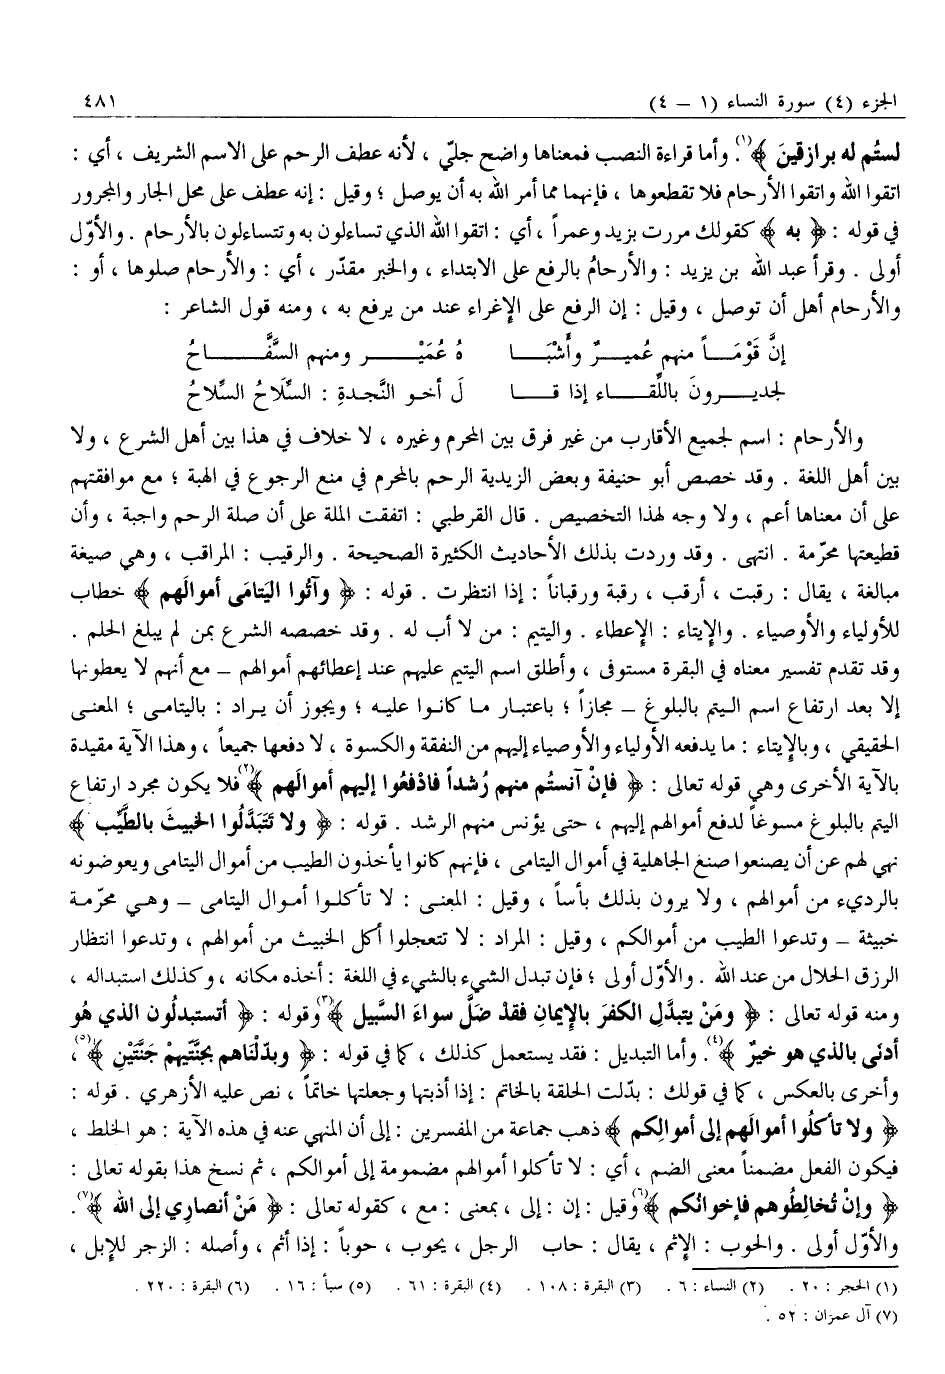 الجزء (٤) سورة النساء (١ – ٤) ٤٨١
لستُم له برازقينَ ﴾(١). وأما قراءة النصب فمعناها واضح جليّ ، لأنه عطف الرحم على الاسم الشريف ، أي :
اتقوا الله واتقوا الأرحام فلا تقطعوها ، فإنهما مما أمر الله به أن يوصل ؛ وقيل : إنه عطف على محل الجار والمجرور
في قوله : ﴿ به ﴾ كقولك مررت بزيد وعمراً ، أي : اتقوا الله الذي تساءلون به وتتساءلون بالأرحام . والأوّل
أولى . وقرأ عبد الله بن يزيد : والأرحامُ بالرفع على الابتداء ، والخبر مقدّر ، أي : والأرحام صلوها ، أو :
والأرحام أهل أن توصل ، وقيل : إن الرفع على الإغراء عند من يرفع به ، ومنه قول الشاعر :
إنَّ قَوْمَاً منهم عُميرٌ وأَشْبَا هُ عُمَيْر ومنهم السَّفَّاحُ
لجديرونَ باللِّقاء إذا قا لَ أخو النَّجدةِ : السِّلَاحُ السِّلاحُ
والأرحام : اسم لجميع الأقارب من غير فرق بين المحرم وغيره ، لا خلاف في هذا بين أهل الشرع ، ولا
بين أهل اللغة . وقد خصص أبو حنيفة وبعض الزيدية الرحم بالمحرم في منع الرجوع في الهبة ؛ مع موافقتهم
على أن معناها أعم ، ولا وجه لهذا التخصيص . قال القرطبي : اتفقت الملة على أن صلة الرحم واجبة ، وأن
قطيعتها محرّمة . انتهى . وقد وردت بذلك الأحاديث الكثيرة الصحيحة . والرقيب : المراقب ، وهي صيغة
مبالغة ، يقال : رقبت ، أرقب ، رقبة ورقباناً : إذا انتظرت . قوله : ﴿ وآتُوا اليَتامَى أموالَهم ﴾ خطاب
للأولياء والأوصياء . والإيتاء : الإعطاء . واليتيم : من لا أب له . وقد خصصه الشرع بمن لم يبلغ الحلم .
وقد تقدم تفسير معناه في البقرة مستوفى ، وأطلق اسم اليتيم عليهم عند إعطائهم أموالهم – مع أنهم لا يعطونها
إلا بعد ارتفاع اسم اليتم بالبلوغ – مجازاً ؛ باعتبار ما كانوا عليه ؛ ويجوز أن يراد : باليتامى ؛ المعنى
الحقيقي ، وبالإيتاء : ما يدفعه الأولياء والأوصياء إليهم من النفقة والكسوة ، لا دفعها جميعاً ، وهذا الآية مقيدة
بالآية الأخرى وهي قوله تعالى : ﴿ فإنْ آنستُم منهم رُشداً فادْفعُوا إليهم أموالَهم ﴾(٢) فلا يكون مجرد ارتفاع
اليتم بالبلوغ مسوغاً لدفع أموالهم إليهم ، حتى يؤنس منهم الرشد . قوله : ﴿ ولا تَتَبَدَّلُوا الخبيثَ بالطَّيِّب ﴾
نهي لهم عن أن يصنعوا صنغ الجاهلية في أموال اليتامى ، فإنهم كانوا يأخذون الطيب من أموال اليتامى ويعوضونه
بالرديء من أموالهم ، ولا يرون بذلك بأساً ، وقيل : المعنى : لا تأكلوا أموال اليتامى – وهي محرّمة
خبيثة – وتدعوا الطيب من أموالكم ، وقيل : المراد : لا تتعجلوا أكل الخبيث من أموالهم ، وتدعوا انتظار
الرزق الحلال من عند الله . والأوّل أولى ؛ فإن تبدل الشيء بالشيء في اللغة : أخذه مكانه ، وكذلك استبداله ،
ومنه قوله تعالى : ﴿ ومَنْ يتبدَّلِ الكفرَ بالإيمانِ فقدْ ضَلَّ سواءَ السَّبيل ﴾(٣) وقوله : ﴿ أتستبدلُون الذي هُو
أدنَى بالذي هو خيرٌ ﴾(٤). وأما التبديل : فقد يستعمل كذلك ، كما في قوله : ﴿ وبدّلْناهم بجنَّتَيهِمْ جَنَّتَيْنِ ﴾(٥) ،
وأخرى بالعكس ، كما في قولك : بدّلت الحلقة بالخاتم : إذا أذبتها وجعلتها خاتماً ، نص عليه الأزهري . قوله :
﴿ ولا تأكلُوا أموالَهم إلى أموالِكم ﴾ ذهب جماعة من المفسرين : إلى أن المنهي عنه في هذه الآية : هو الخلط ،
فيكون الفعل مضمناً معنى الضم ، أي : لا تأكلوا أموالهم مضمومة إلى أموالكم ، ثم نسخ هذا بقوله تعالى :
﴿ وإنْ تُخالِطُوهم فإخوانُكم ﴾(٦) وقيل : إن : إلى ، بمعنى : مع ، كقوله تعالى : ﴿ مَنْ أنصارِي إلى الله ﴾(٧).
والأوّل أولى . والحوب : الإثم ، يقال : حاب الرجل ، يحوب ، حوباً : إذا أثم ، وأصله : الزجر للإبل ،
(١) الحجر : ٢٠ . (٢) النساء : ٦ . (٣) البقرة : ١٠٨ . (٤) البقرة : ٦١ . (٥) سبأ : ١٦ . (٦) البقرة : ٢٢٠ .
(٧) آل عمران : ٥٢ .